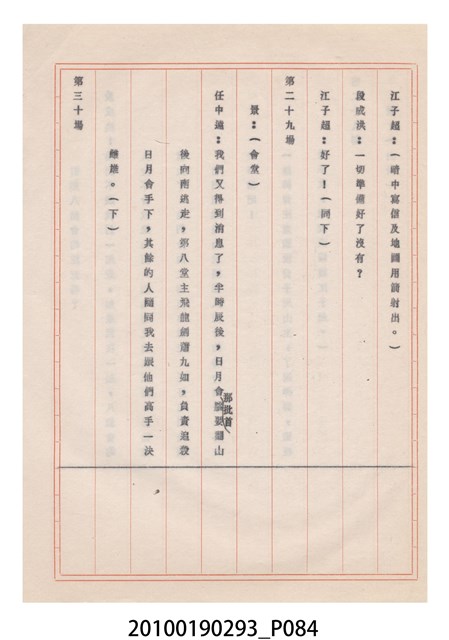 江子超：（暗中寫信及地圖用鏢射出。）
段成洪：一切準備好了沒有？
江子超：好了！（同下）
第二十九場
景：（會堂）
任中遠：我們又得到消息了，半時辰後，日月會那批首腦要翻山
後向南逃走，第八堂主飛龍劍蕭九如，負責追殺
日月會手下，其餘的人隨我去跟他們高手一決
雌雄。（下）
第三十場
20100190293_P084